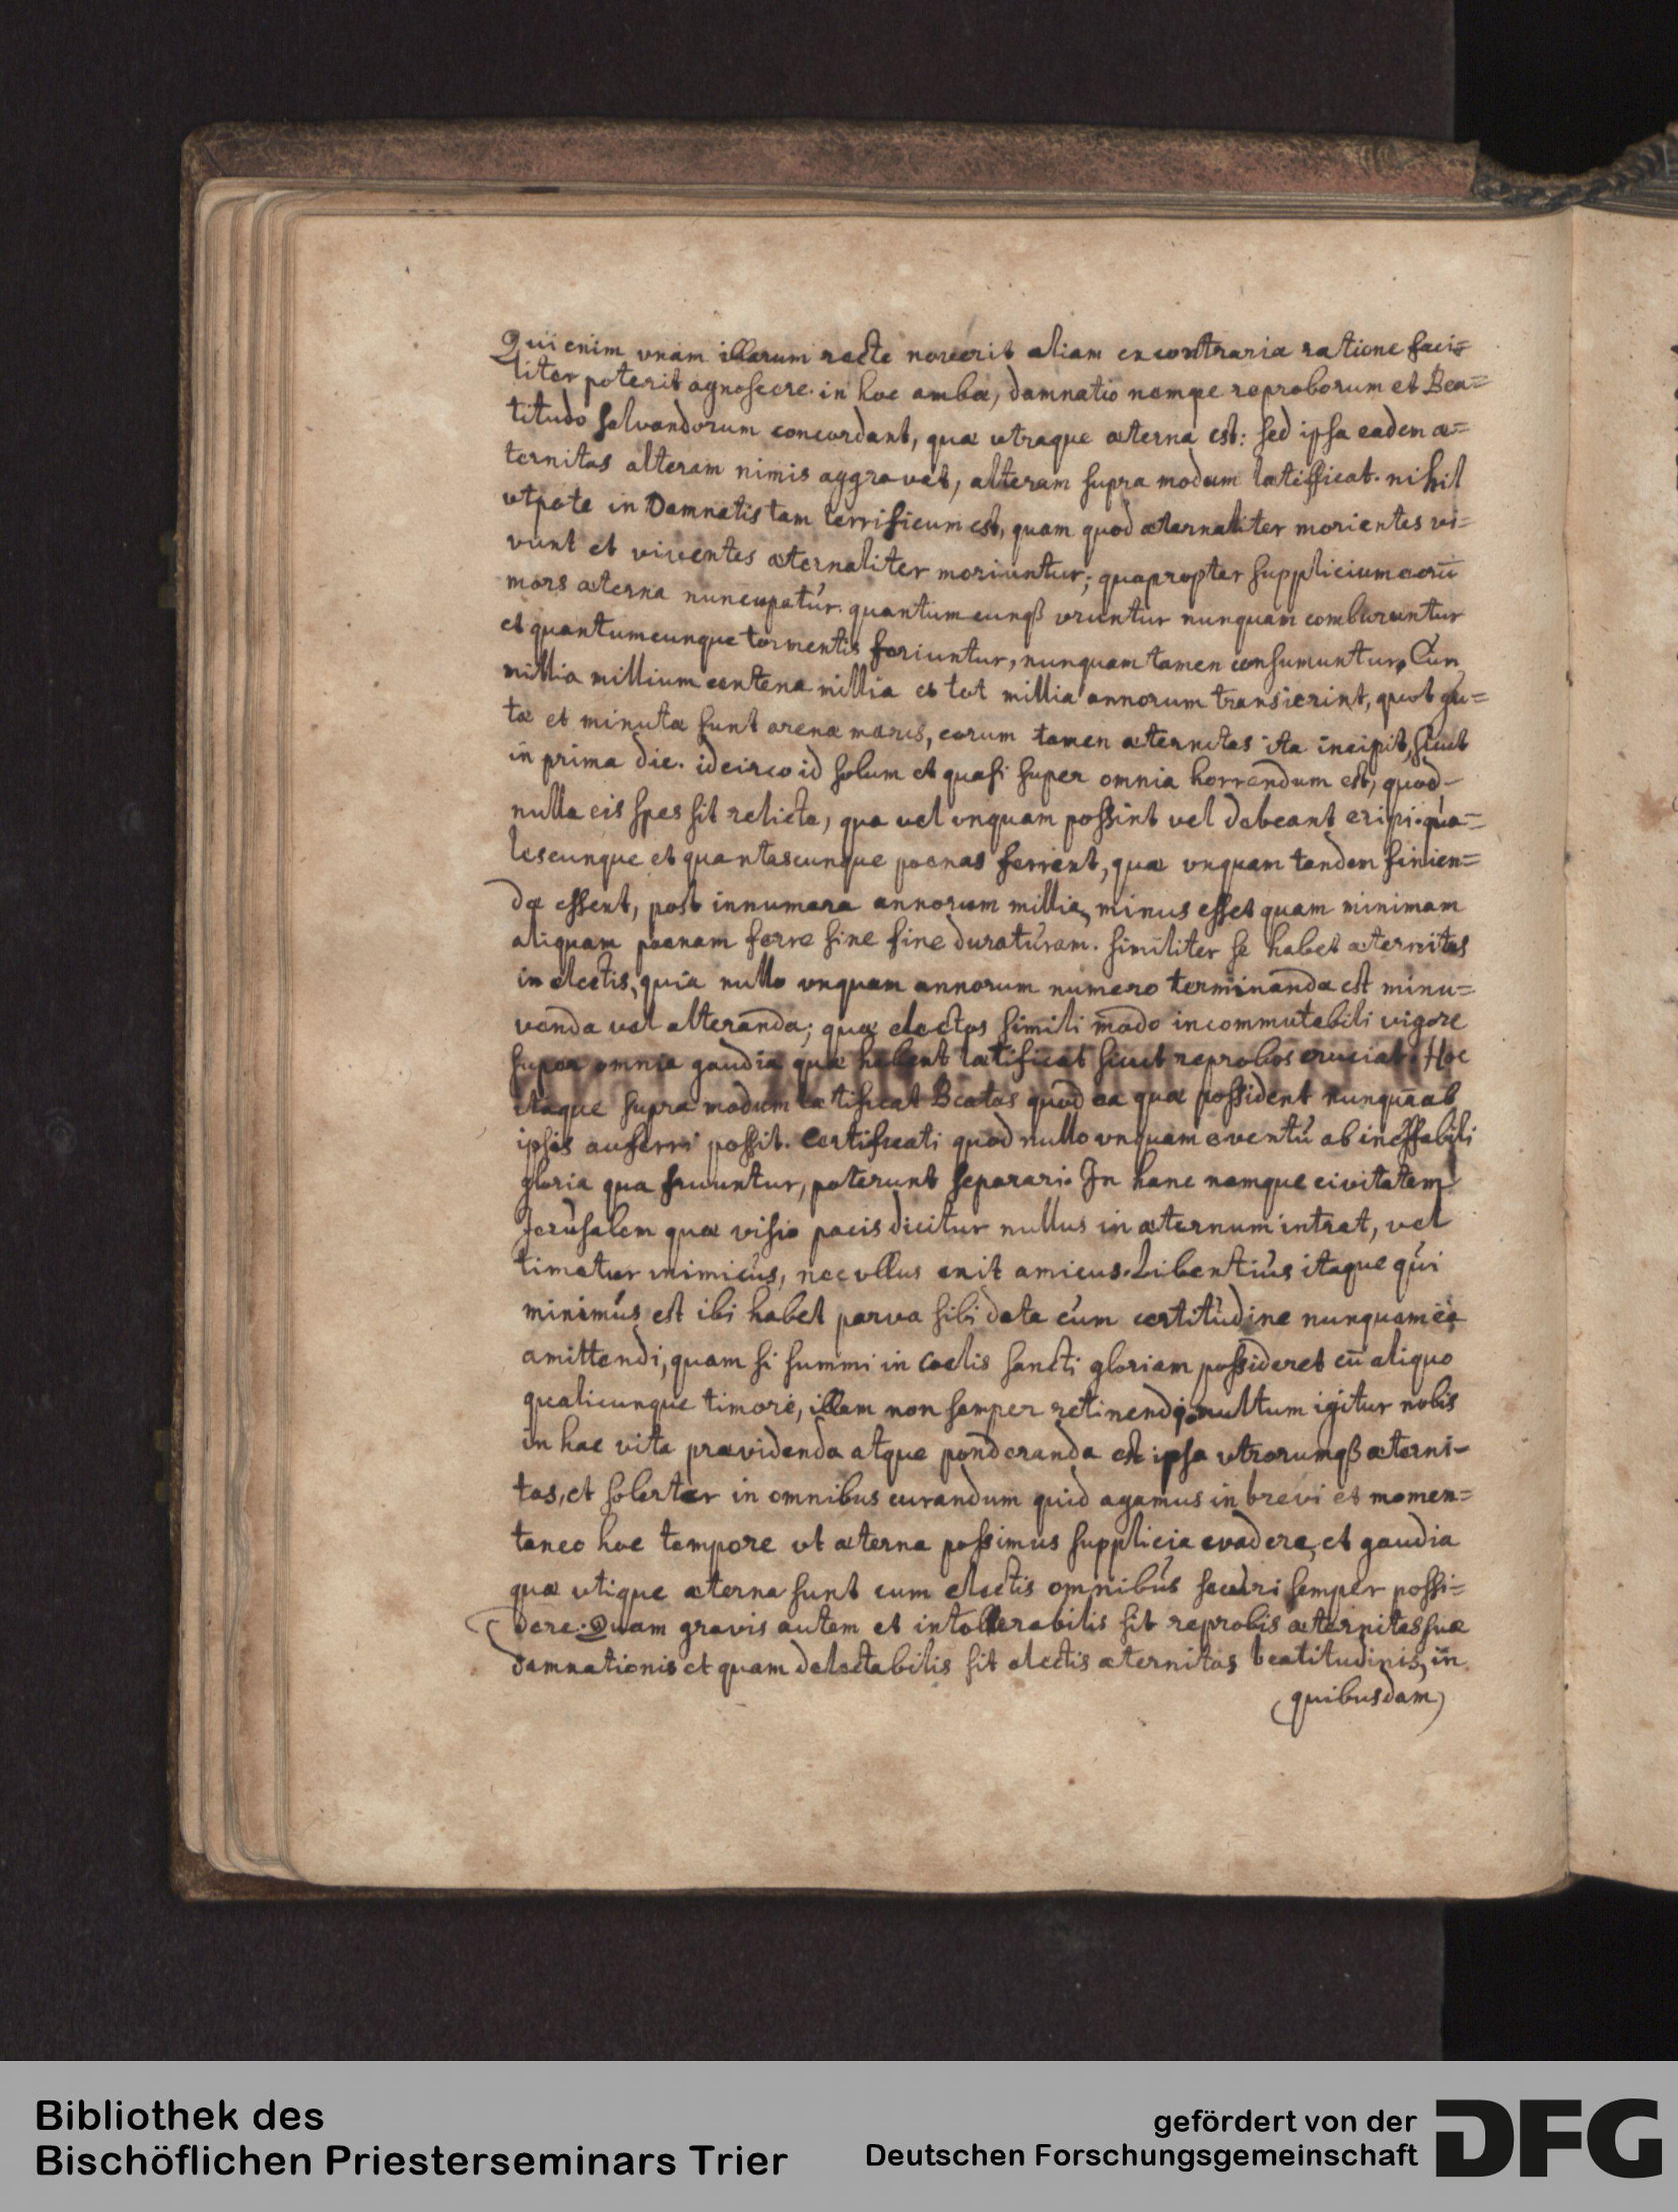 Qui enim vnam illarum recte noverit aliam ex contraria ratione faci=
liter poterit agnoscere. in hoc ambæ, damnatio nempe reproborum et Bea=
titudo salvandorum concordant, quæ vtraque æterna est: sed ipsa eadem æ=
ternitas alteram nimis aggravat, alteram supra modum lætifficat. nihil
vtpote in Damnatis tam terrificum est, quam quod æternaliter morientes vi=
vunt et viventes æternaliter moriuntur; quapropter supplicium eorū
mors æterna nuncupatur. quantumcunqß vruntur nunquam comburuntur
et quantumcunque tormentis feriuntur, nunquam tamen consumuntur, Cum
millia millium centena millia et tot millia annorum transierint, quot gu=
tæ et minutæ sunt arenæ maris, earum tamen æternitas ita incipit, sicut
in prima die. idcirco id solum et quasi super omnia horrendum est, quod
nulla eis spes sit relicta, qua vel vnquam possint vel debeant eripi. qua=
lescunque et quantascunque poenas ferrent, quæ vnquam tandem finien=
dæ essent, post innumera annorum millia, minus esset quam minimam
aliquam poenam ferre sine fine duraturam. similiter se habet æternitas
in electis, quia nullo vnquam annorum numero terminanda est minu=
venda vel alteranda; quæ electos simili modo incommutabili vigore
super omnia gaudia quæ habent lætificat sicut reprobos cruciat. Hoc
itaque supra modum lætificat Beatos quod ea quæ possident nunquā ab
ipsis auferri possit. Certificati quod nullo vnquam eventu ab ineffabili
gloria qua fruuntur, poterunt separari. In hanc namque civitatem
Jerusalem quæ visio pacis dicitur nullus in æternum intrat, vel
timetur inimicus, nec vllus exit amicus. Libentius itaque qui
minimus est ibi habet parva sibi data cum certitudine nunquam ea
amittendi, quam si summi in Coelis sancti gloriam possideret cū aliquo
qualicunque timore, illam non semper retinendi, multum igitur nobis
in hac vita prævidenda atque ponderanda est ipsa vtrorumqß æterni-
tas, et solerter in omnibus curandum quid agamus in brevi et momen=
taneo hoc tempore vt æterna possimus supplicia evadere, et gaudia
quæ vtique æterna sunt cum electis omnibus securi semper possi=
dere. Quam gravis autem et intollerabilis sit reprobis æternitas suæ
damnationis et quam delectabilis sit electis æternitas beatitudinis, in
quibusdam
Bibliothek des
Bischöflichen Priesterseminars Trier
gefördert von der
Deutschen Forschungsgemeinschaft
DFG